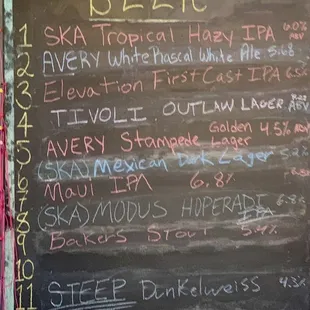 BEER
1 SKA Tropical Hazy IPA 6.0% ABV
2 AVERY White Rascal White Ale 5.6%
3 Elevation First Cast IPA
4 TIVOLI OUTLAW LAGER ABV
5 AVERY Stampede Golden Lager 4.5% ABV
6 (SKA) Mexican Dark Lager
7 Maui IPA 6.8%
8 (SKA) MODUS HOPERANDI IPA 6.8%
9 Bakers Stout 5.4%
10
11 STEEP Dunkelweiss 4.3%